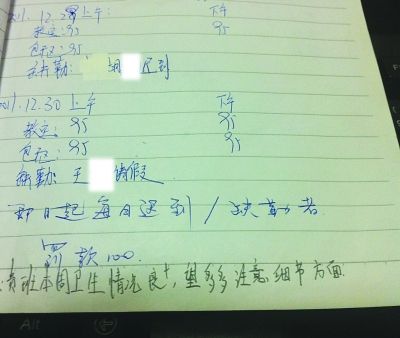 11.12.29上午: 下午
教室:95 95
包区:95
缺勤: 胡 迟到
11.12.30上午 下午
教室:95 95
包区:95 95
缺勤:王 请假
即日起每日迟到/缺勤者
罚款100.
贵班本周卫生情况良+,望多多注意细节方面
Alt